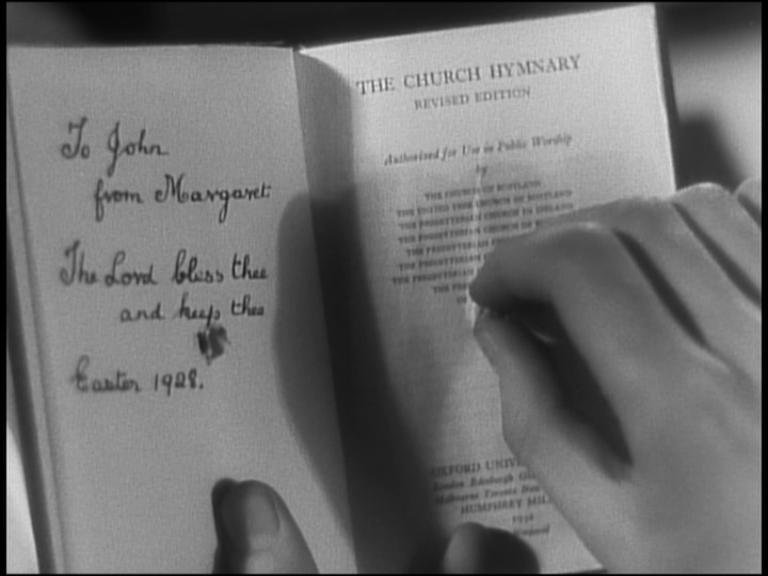 To John
from Margaret
The Lord bless thee
and keep thee
Easter 1928.
THE CHURCH HYMNARY
REVISED EDITION
Authorized for Use in Public Worship
by
THE CHURCH OF SCOTLAND
THE UNITED FREE CHURCH OF SCOTLAND
THE PRESBYTERIAN CHURCH IN IRELAND
THE PRESBYTERIAN
THE PRESBYTERIAN
THE PRESBYTERIAN
THE PRESBYTERIAN
THE
OXFORD
London Edinburgh
Melbourne Toronto
HUMPHREY